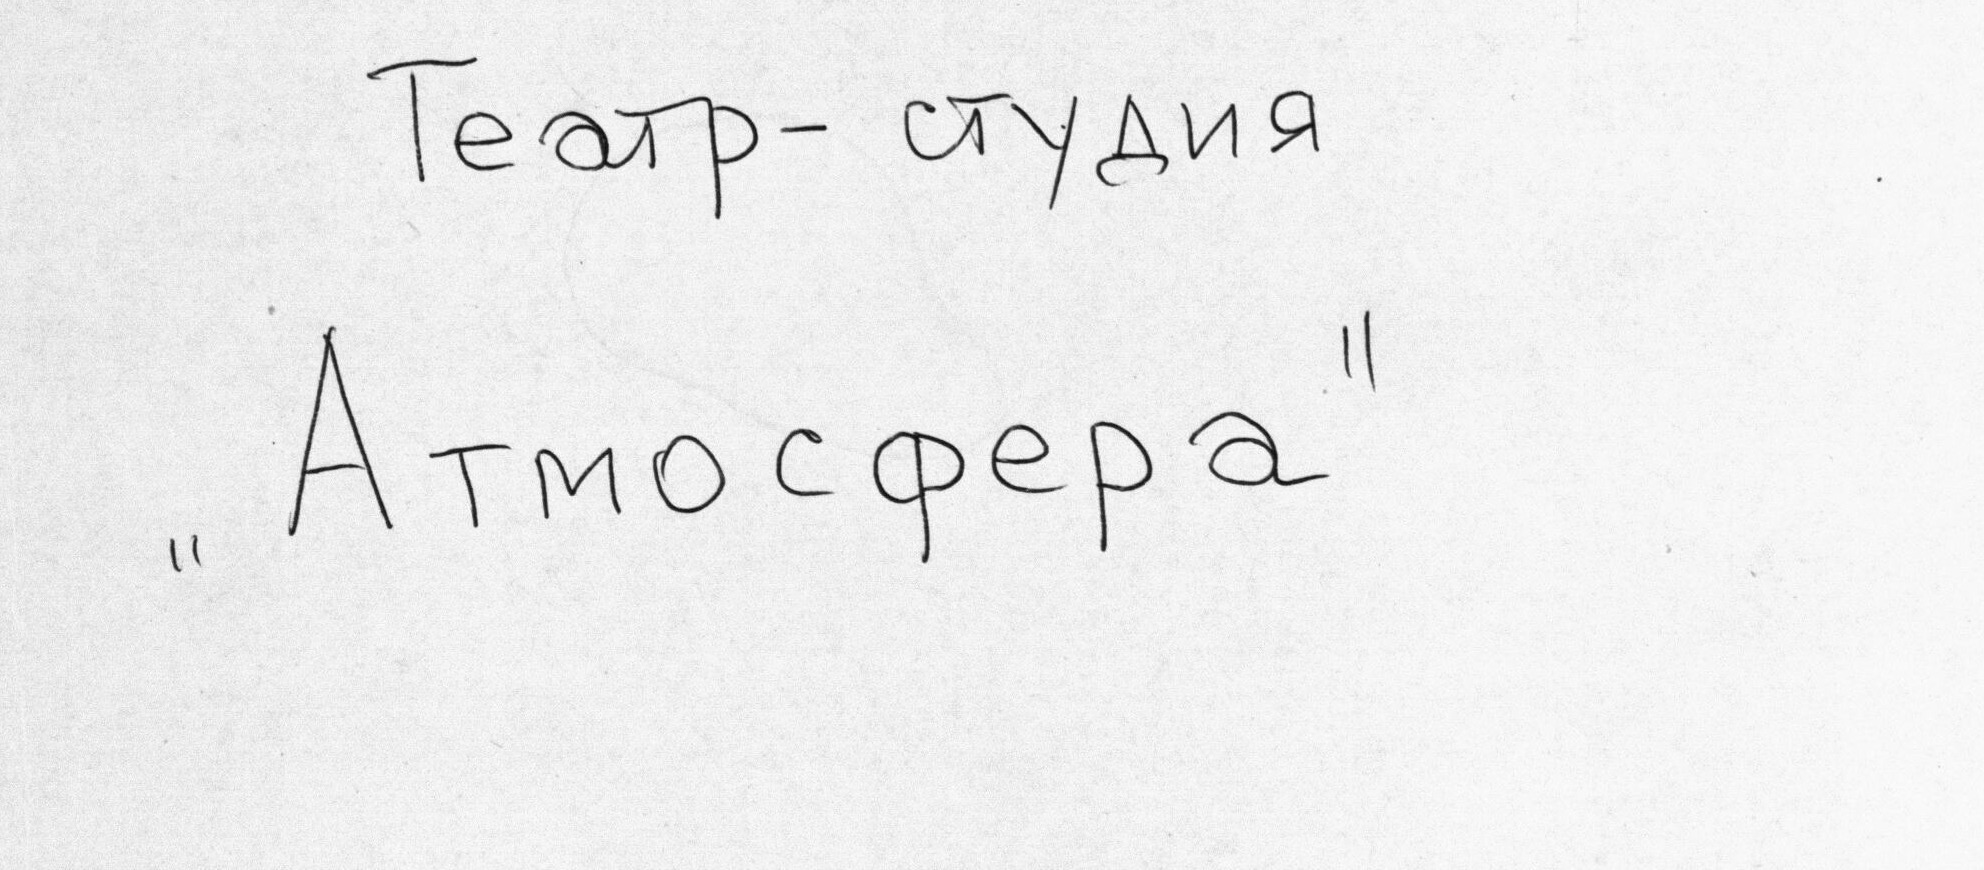 Театр- студия
„Атмосфера"